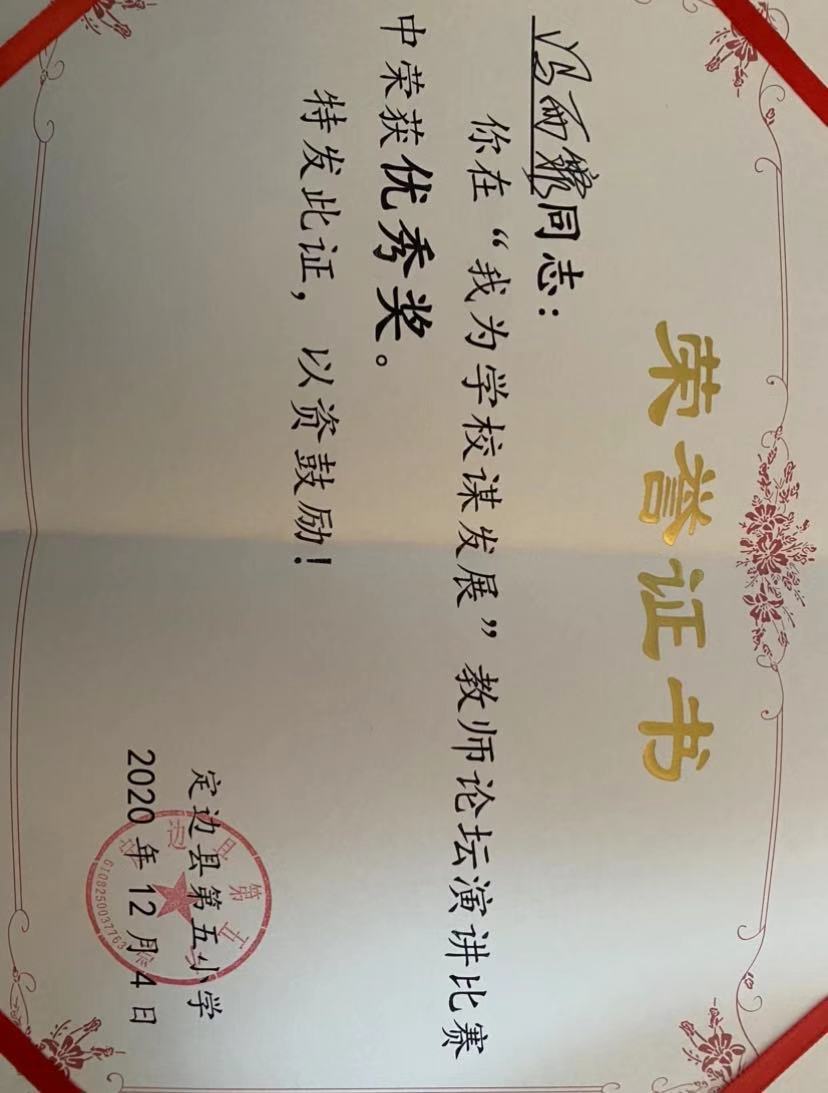 荣誉证书
冯雨霏同志：
你在“我为学校谋发展”教师论坛演讲比赛
中荣获优秀奖。
特发此证，以资鼓励！
定边县第五小学
2020年12月4日
6108250037763